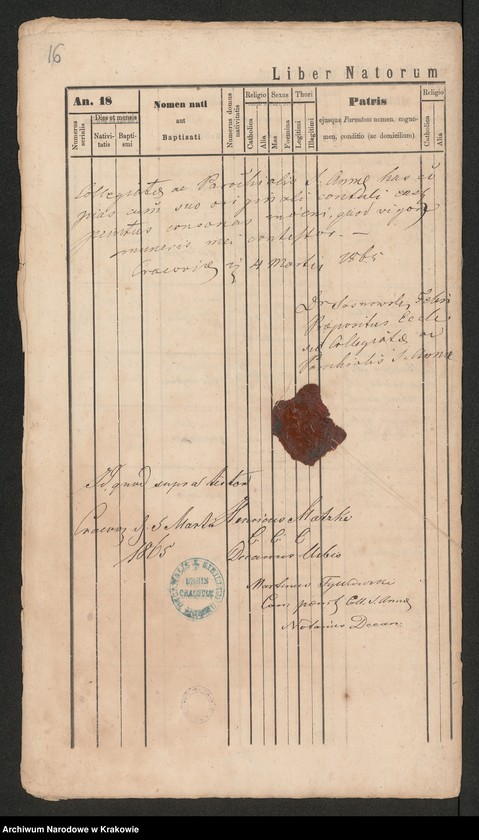 16
Liber Natorum
An. 18
Numerus serialis
Dies et mensis
Nativitatis
Baptismi
Nomen nati
aut
Baptisati
Numerus domus nativitatis
Religio
Catholica
Alia
Sexus
Mas
Foemina
Thori
Legitimi
Illegitimi
Patris
ejusque Parentum nomen, cognomen, conditio (ac domicilium)
Religio
Catholica
Alia
Collegiatæ ac Parochialis S. Annæ has co
pias cum suo originali contuli easq
penitus consonas inveni, quod vigore
muneris mei contestor. —
Cracoviæ 4 Martii 1865
Dr Sosnowski Felix
Præpositus Eccle
siæ Collegiatæ ac
Parochialis S. Annæ
Id quod supra testor
Cracoviæ d. 5 Martii
1865
Henricus Matzke
C C C
Decanus Urbis
Martinus
Can poenit Coll S. Annæ
Notarius Decan.
URBIS
CRACOVIÆ
Archiwum Narodowe w Krakowie